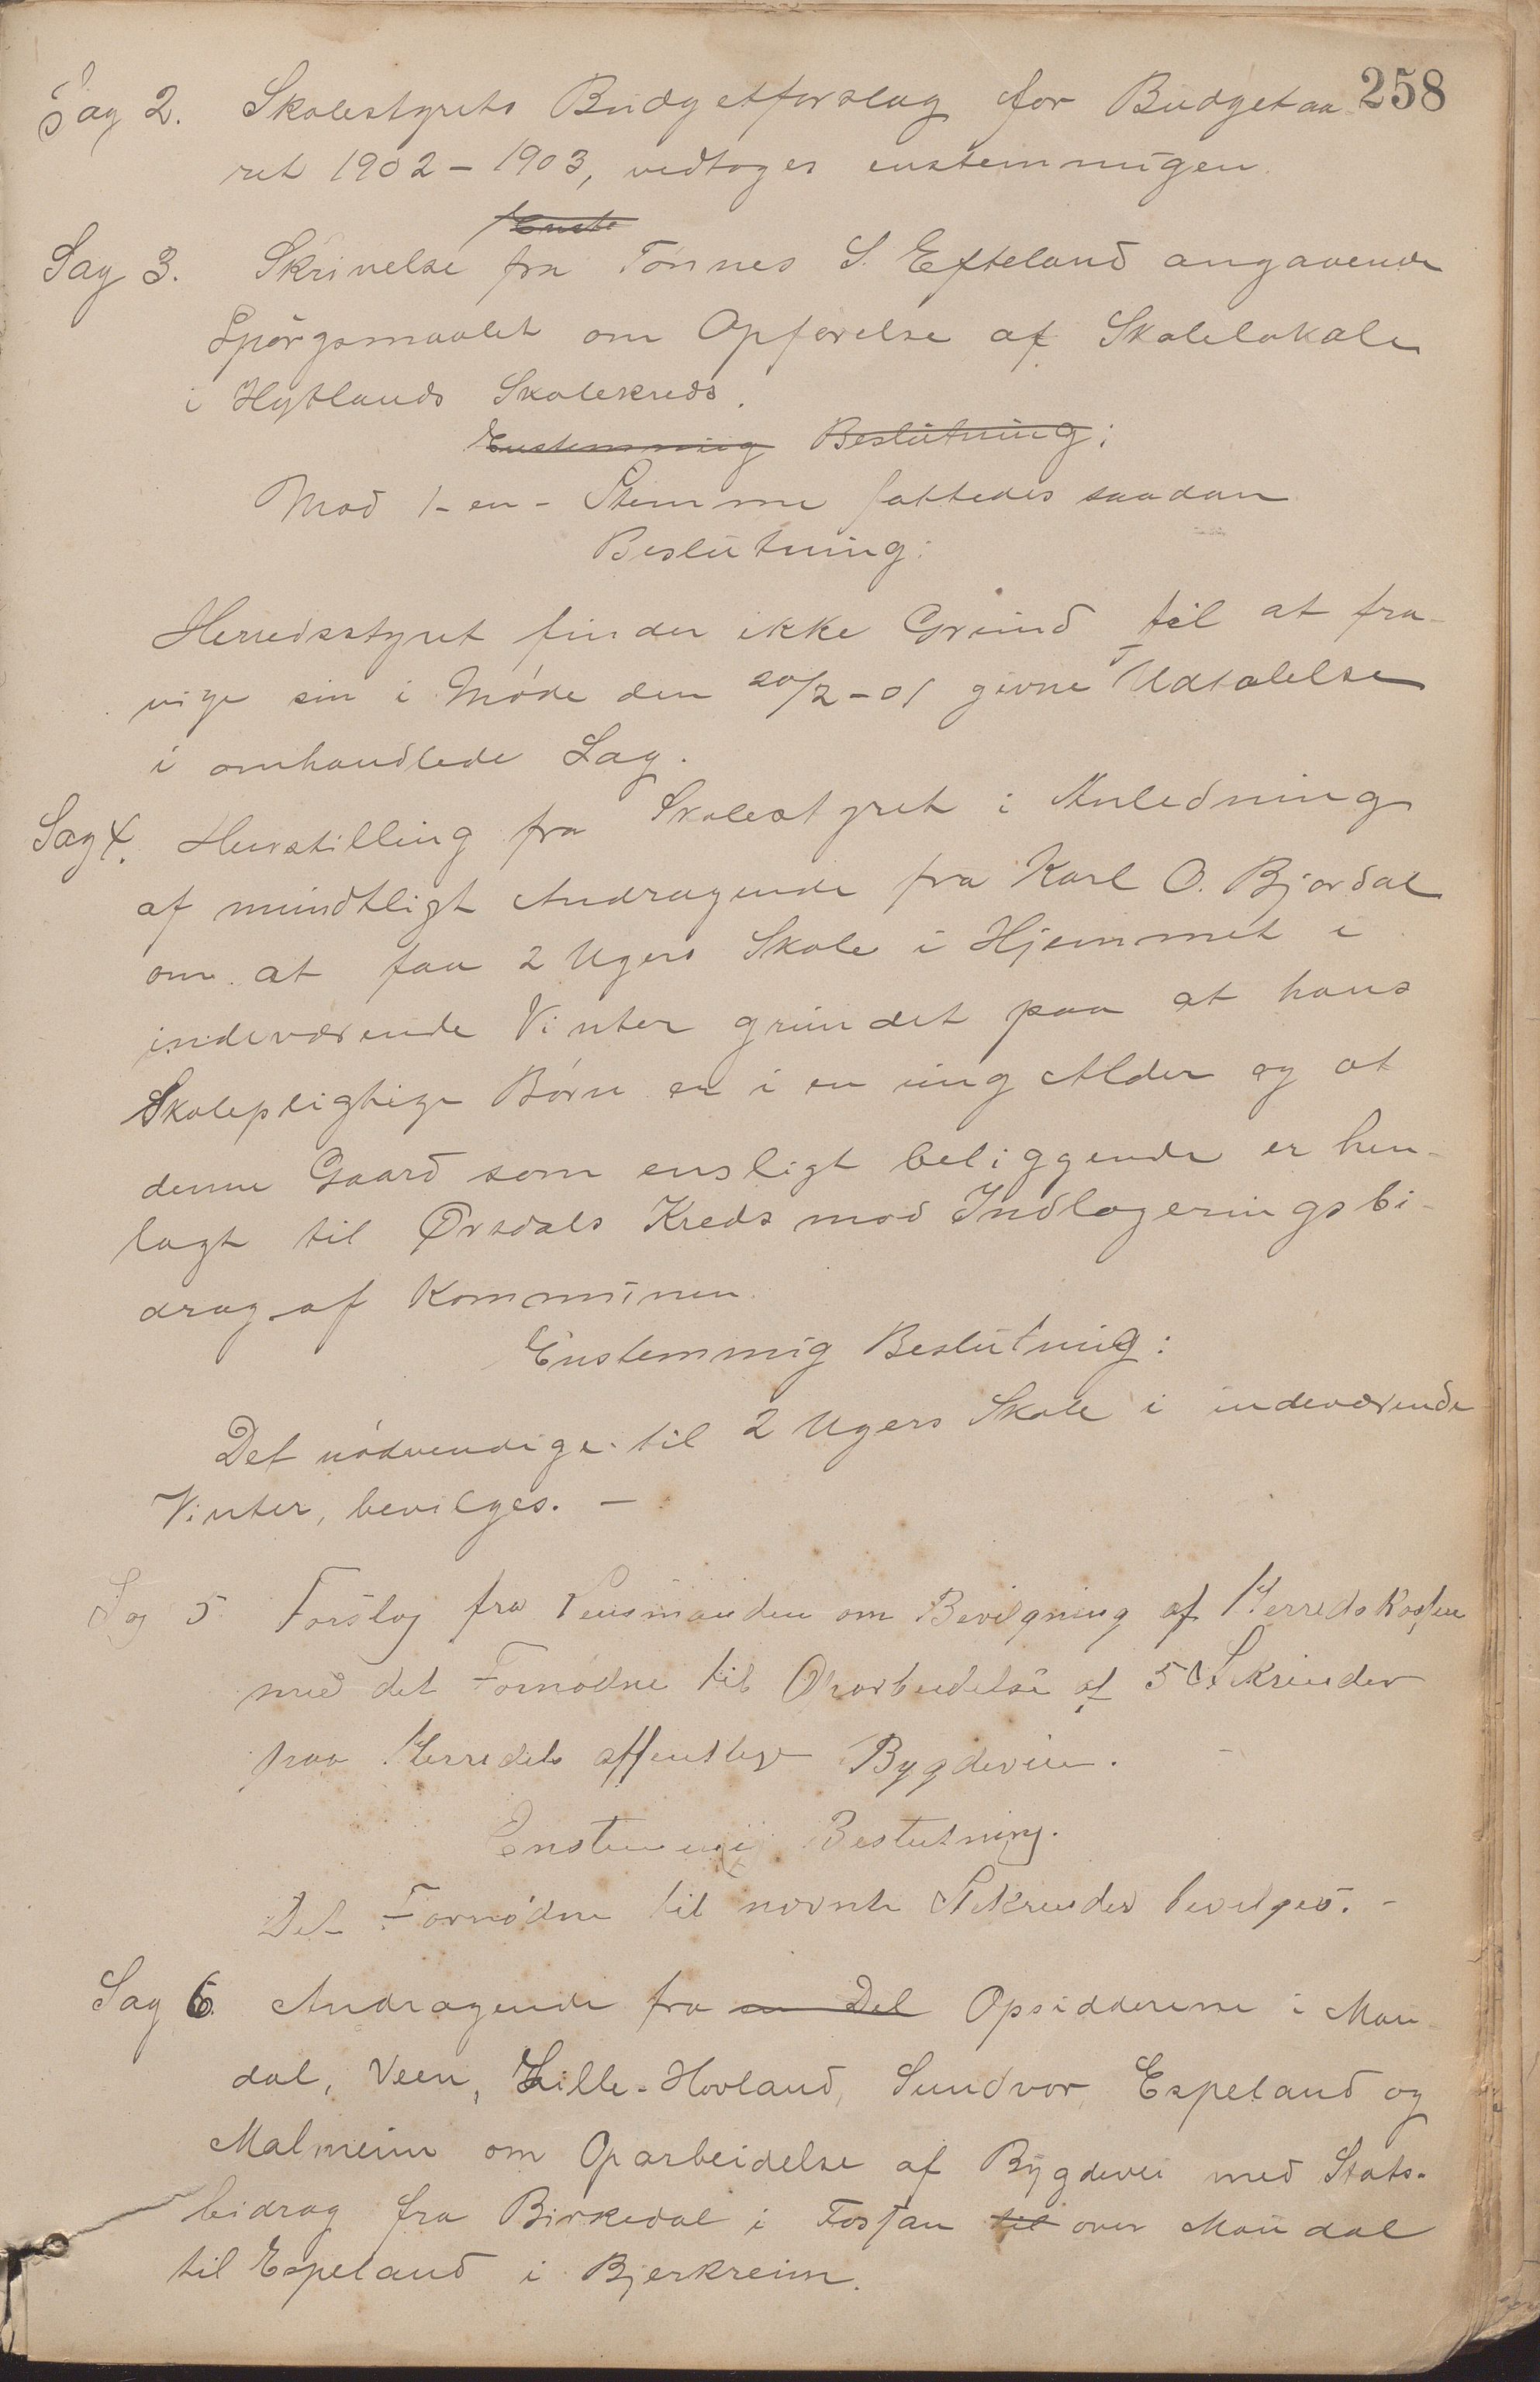 258
Sag 2. Skolestyrets Budgetforslag for Budgetaa
ret 1902 – 1903, vedtoges enstemmigen.
Enste
Sag 3. Skrivelse fra Tønnes S. Efteland angaaende
Spørgsmaalet om Opførelse af Skolelokale
i Hytlands Skolekreds.
Enstemmig Beslutning:
Mod 1 - en - Stemme fattedes saadan
Beslutning:
Herredsstyret finder ikke Grund til at fra-
vige sin i Møde den 20/2 - 01 givne Udtalelse
i omhandlede Sag.
Sag 4. Henstilling fra Skolestyret i Anledning
af mundtligt Andragende fra Karl O. Bjordal
om at faa 2 Ugers Skole i Hjemmet i
indeværende Vinter grundet paa at hans
Skolepligtige Børn er i en ung Alder og at
denne Gaard som ensligt beliggende er hen-
lagt til Ørsdals Kreds mod Indlogeringsbi-
drag af Kommunen.
Enstemmig Beslutning:
Det nødvendige til 2 Ugers Skole i indeværende
Vinter, bevilges. –
Sag 5 Forslag fra Lensmanden om Bevilgning af Herredskassen
med det Fornødne til Oparbeidelse af 5 Stikrender
paa Herredets offentlige Bygdeveie.
Enstemmig Beslutning.
Det Fornødne til nævnte Stikrender bevilges. –
Sag 6. Andragende fra en Del Opsidderne i Mau
dal, Veen, Lille-Hovland, Sundvor, Espeland og
Malmeim om Oparbeidelse af Bygdevei med Stats-
bidrag fra Birkedal i Fossan til over Maudal
til Espeland i Bjerkreim.